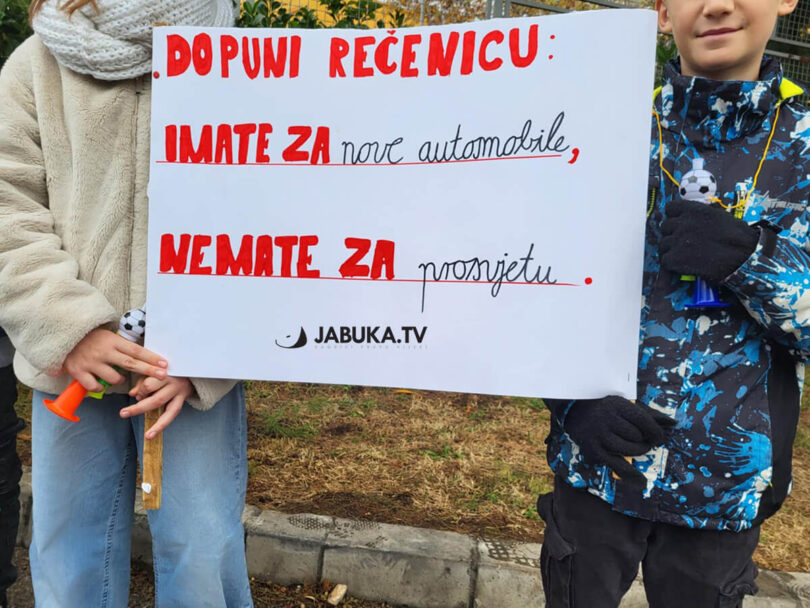 DOPUNI REČENICU:
IMATE ZA nove automobile,
NEMATE ZA prosvjetu.
JABUKA.TV